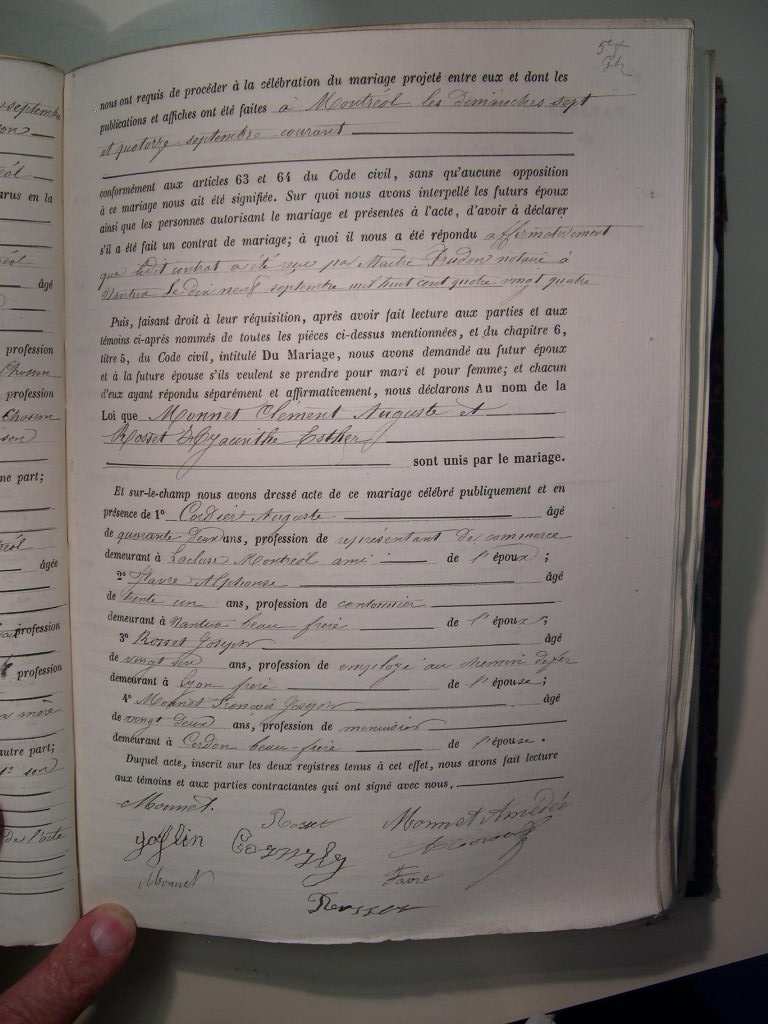 septembre
nous ont requis de procéder à la célébration du mariage projeté entre eux et dont les
publications et affiches ont été faites à Montréal les Dimanches sept
et quatorze septembre courant
conformément aux articles 63 et 64 du Code civil, sans qu'aucune opposition
à ce mariage nous ait été signifiée. Sur quoi nous avons interpellé les futurs époux
ainsi que les personnes autorisant le mariage et présentes à l'acte, d'avoir à déclarer
s'il a été fait un contrat de mariage; à quoi il nous a été répondu affirmativement
que ledit contrat a été reçu par Maitre Prudon notaire à
Nantua le dix neuf septembre mil huit cent quatre vingt quatre
Puis, faisant droit à leur réquisition, après avoir fait lecture aux parties et aux
témoins ci-après nommés de toutes les pièces ci-dessus mentionnées, et du chapitre 6,
titre 5, du Code civil, intitulé Du Mariage, nous avons demandé au futur époux
et à la future épouse s'ils veulent se prendre pour mari et pour femme; et chacun
d'eux ayant répondu séparément et affirmativement, nous déclarons Au nom de la
Loi que Monnet Clément Auguste et
Rosset Hyacinthe Esther
sont unis par le mariage.
Et sur-le-champ nous avons dressé acte de ce mariage célébré publiquement et en
présence de 1° Cordier Auguste âgé
de quarante deux ans, profession de représentant de commerce
demeurant à Lacluse Montréal ami de l'époux;
2° Favre Alphonse âgé
de trente un ans, profession de cantonnier
demeurant à Nantua beau frère de l'époux;
3° Rosset Joseph âgé
de vingt six ans, profession de employé au chemin de fer
demeurant à Lyon frère de l'épouse;
4° Monnet François Joseph âgé
de vingt deux ans, profession de menuisier
demeurant à Cerdon beau-frère de l'épouse.
Duquel acte, inscrit sur les deux registres tenus à cet effet, nous avons fait lecture
aux témoins et aux parties contractantes qui ont signé avec nous.
Monnet.
Rosset
Monnet Amédée
goflin
Monnet
Favre
Rosset
arus en la
âgé
profession
profession
une part;
âgée
profession
profession
mère
autre part;